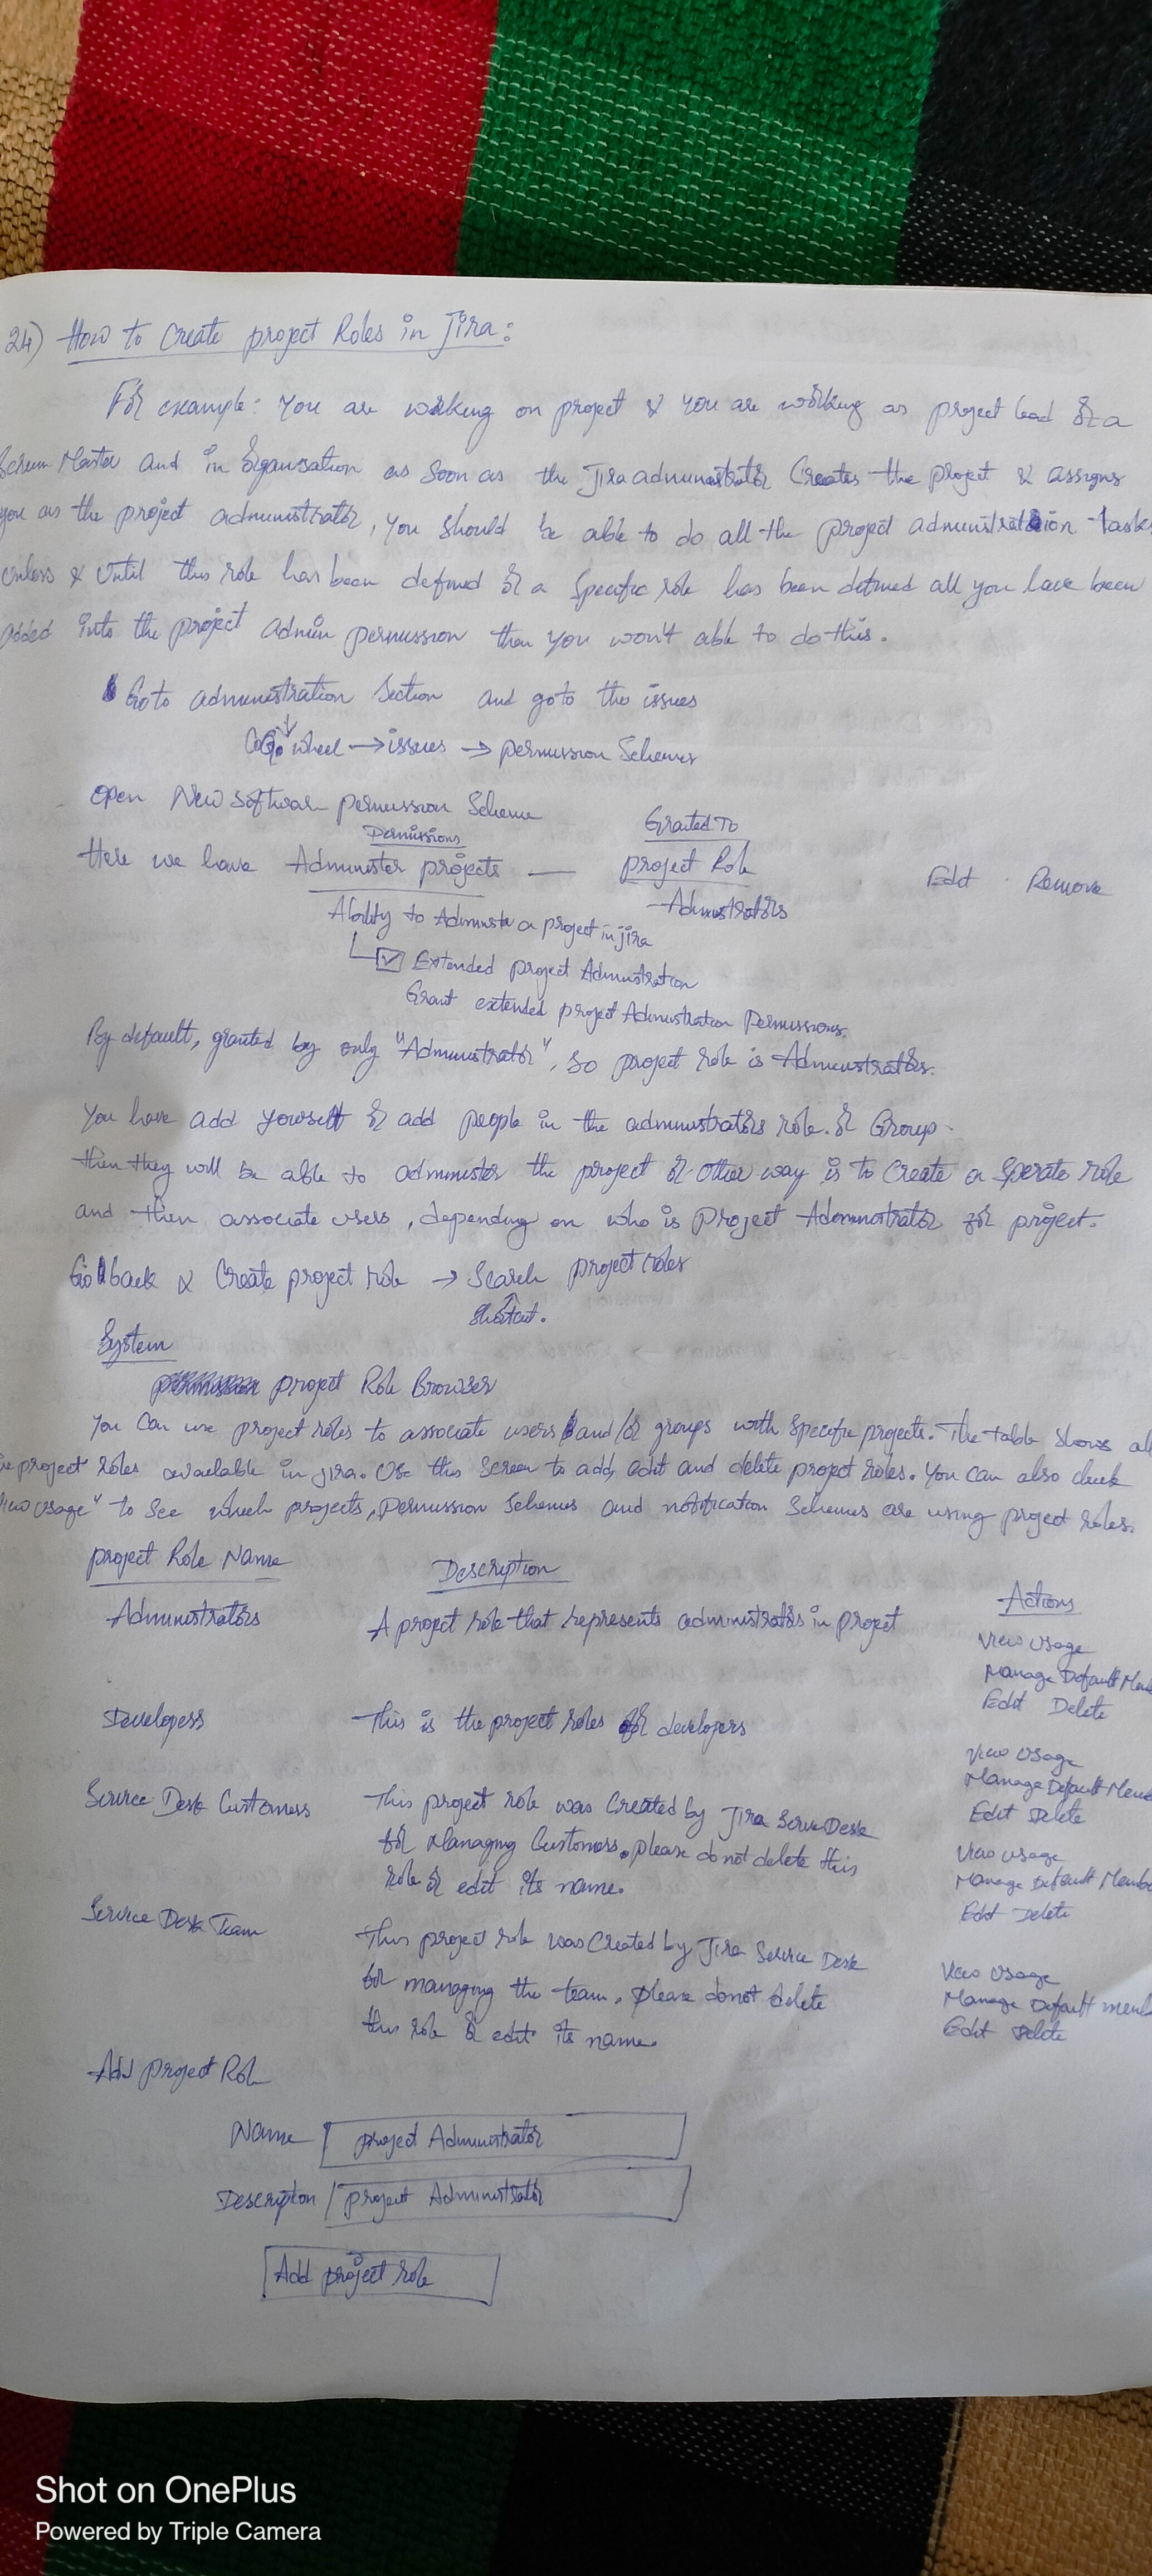 24) How to Create project Roles in Jira:
For example: You are working on project & you are working as project lead or a
Scrum Master and in Organisation as soon as the Jira administrator Creates the project & assigns
you as the project administrator, you should be able to do all the project administration tasks
Unless & Until this role has been defined or a Specific role has been defined all you have been
added into the project admin permission then you won't able to do this.
Go to administration Section and go to the issues
wheel → issues → permission Schemes
Open New software permission Scheme
Permissions Granted To
Here we have Administer projects — project Role Edit Remove
Administrators
Ability to Administer a project in jira
Extended project Administration
Grant extended project Administration Permissions.
By default, granted by only "Administrator", so project role is Administrators.
You have add yourself or add people in the administrators role. or Group.
then they will be able to administer the project or other way is to Create a Sperate role
and then associate users, depending on who is Project Administrator for project.
Go back & Create project role → Search project roles
Shortcut.
System
project Role Browser
You Can use project roles to associate users and/or groups with specific projects. The table shows all
the project roles available in jira. Use this Screen to add, edit and delete project roles. You can also check
"View Usage" to see which projects, permission Schemes and notification Schemes are using project roles.
project Role Name Description Actions
Administrators A project role that represents administrators in project
View Usage
Manage Default Mem
Edit Delete
Developers This is the project roles for developers
View Usage
Manage Default Mem
Edit Delete
Service Desk Customers This project role was Created by Jira Service Desk
for Managing Customers. please do not delete this
role or edit its name.
View usage
Manage Default Membe
Edit Delete
Service Desk Team This project role was Created by Jira Service Desk
for managing the team. please do not delete
this role or edit its name.
View Usage
Manage Default mem
Edit Delete
Add project Role
Name project Administrator
Description project Administrator
Add project role
Shot on OnePlus
Powered by Triple Camera